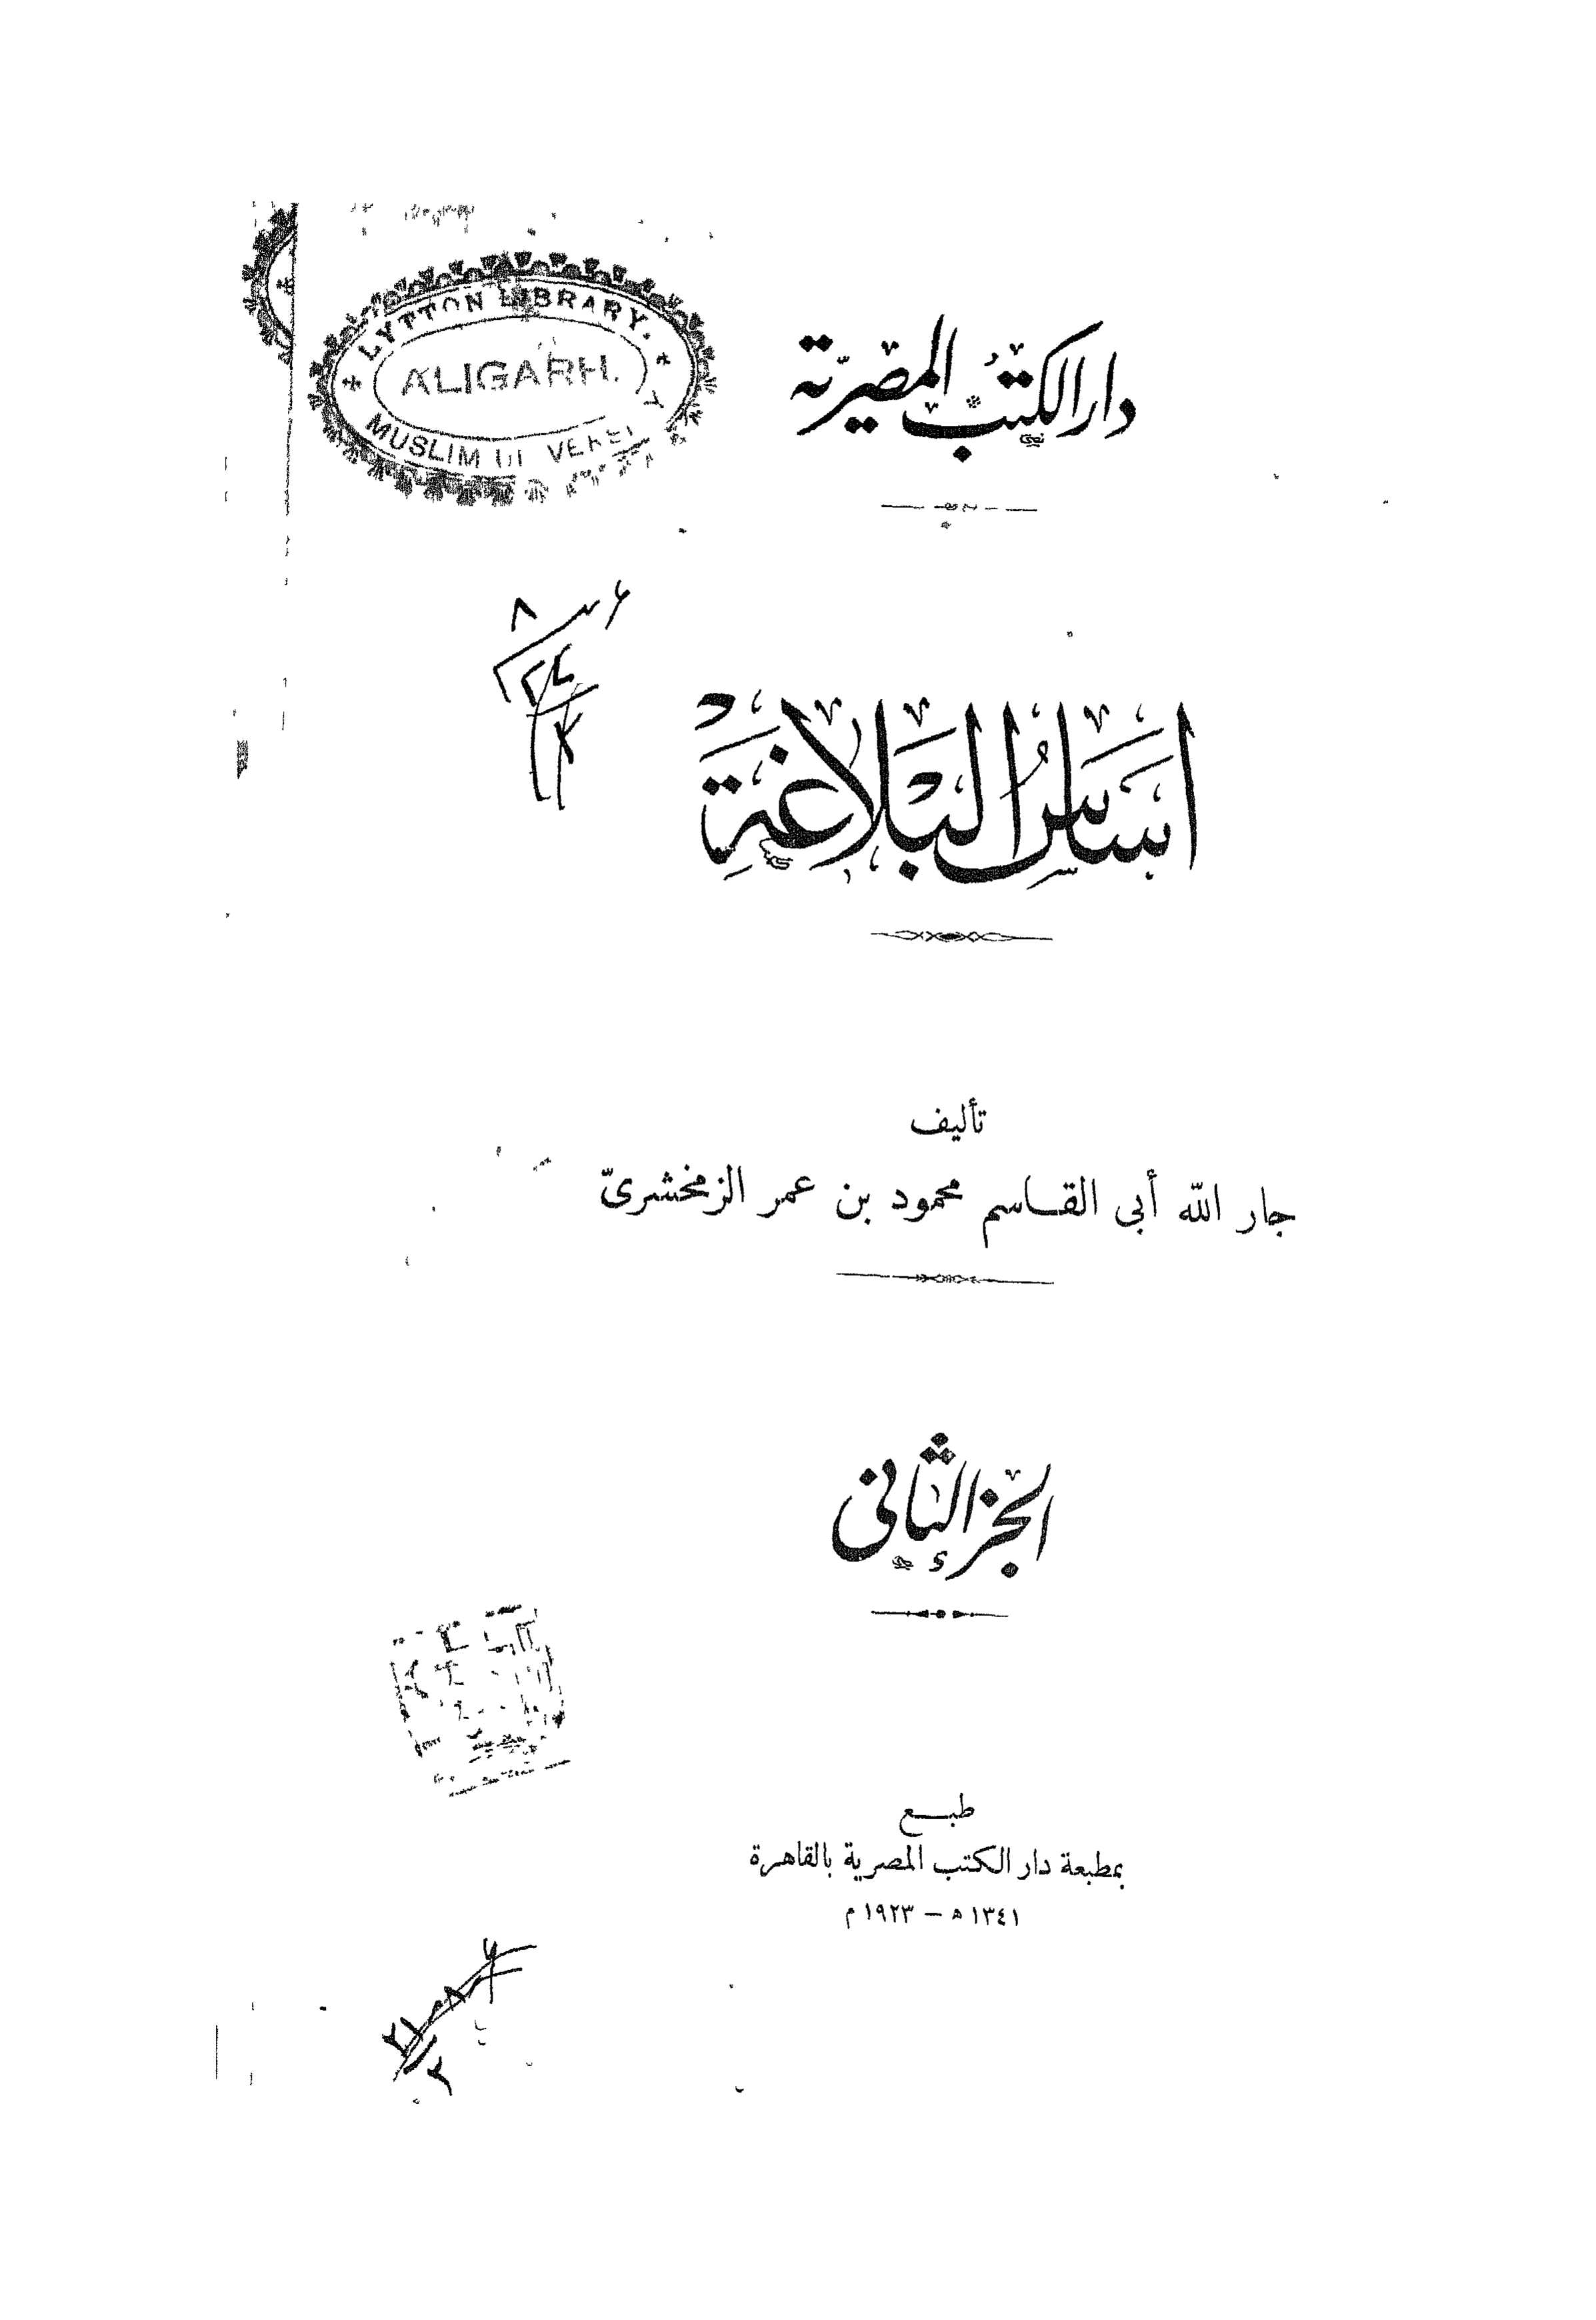 دار الكتب المصرية
LYTTON LIBRARY.
ALIGARH.
MUSLIM
أساس البلاغة
تأليف
جار الله أبى القاسم محمود بن عمر الزمخشرىّ
الجزء الثانى
طبع
بمطبعة دار الكتب المصرية بالقاهرة
١٣٤١ ه – ١٩٢٣ م